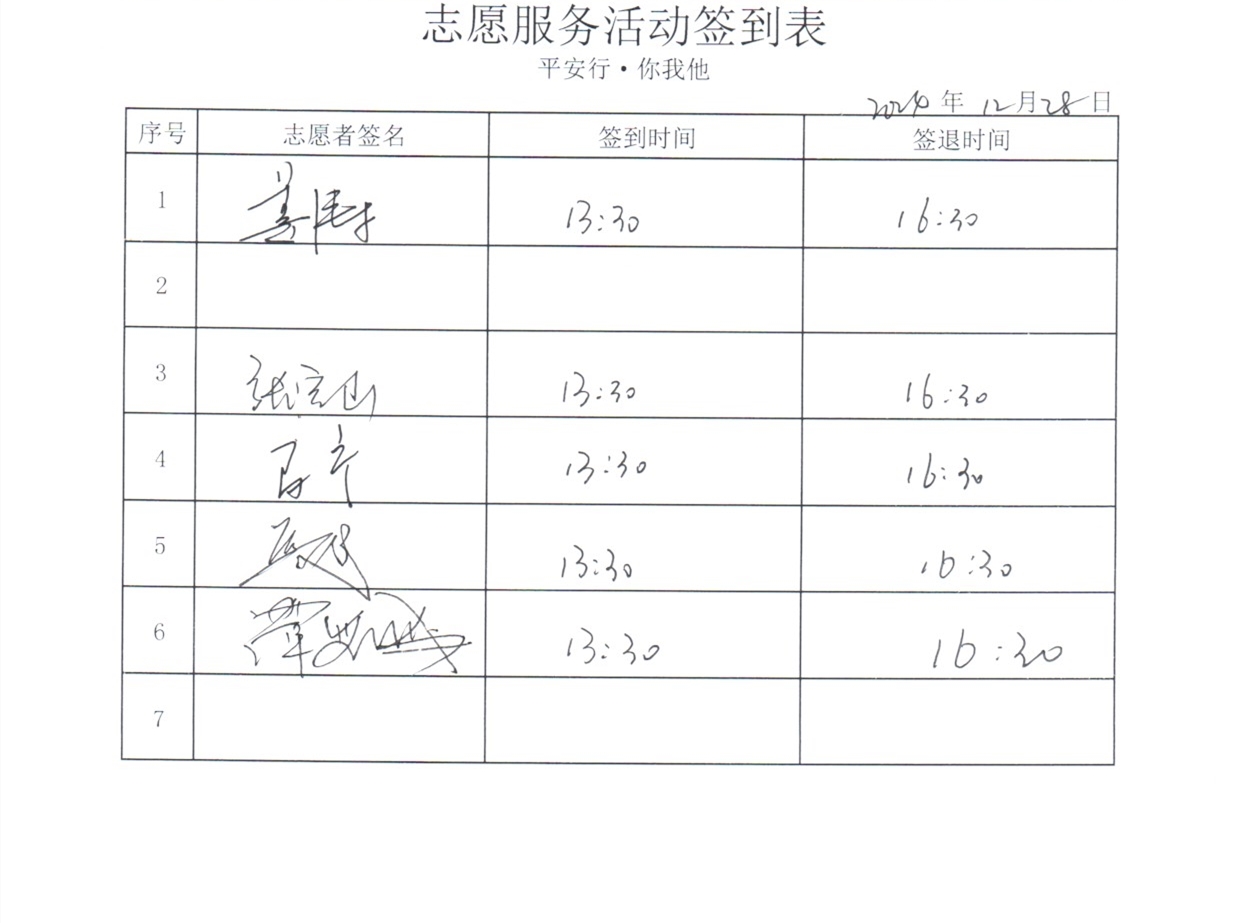 志愿服务活动签到表
平安行·你我他
2024年 12月28日
序号 志愿者签名 签到时间 签退时间
1 13:30 16:30
2
3 张宝山 13:30 16:30
4 13:30 16:30
5 13:30 16:30
6 13:30 16:30
7